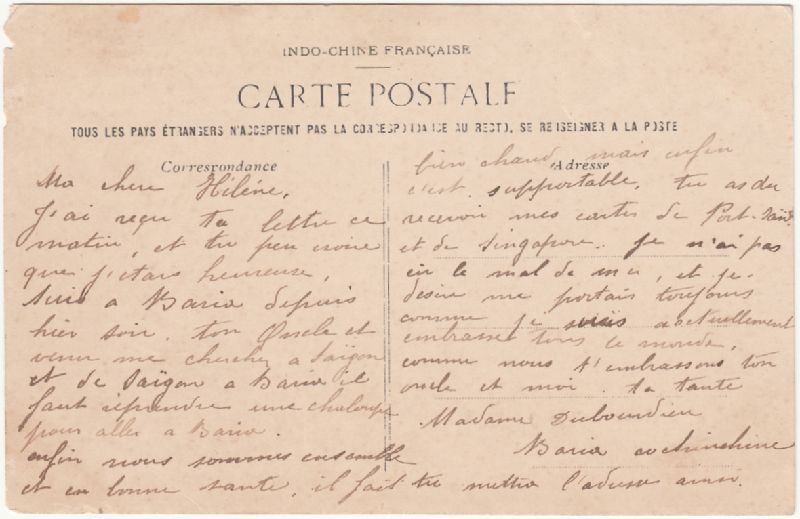 INDO-CHINE FRANÇAISE
CARTE POSTALE
TOUS LES PAYS ÉTRANGERS N'ACCEPTENT PAS LA CORRESPONDANCE AU RECTO, SE RENSEIGNER A LA POSTE
Correspondance
Ma chere Hélène,
J'ai reçu ta lettre ce
matin, et tu peu croire
que j'étais heureuse,
suis a Baria depuis
hier soir. ton Oncle et
venu me chercher a Saïgon
et de Saïgon a Baria il
faut reprendre une chaloupe
pour aller a Baria.
enfin nous sommes ensemble
et en bonne sante, il fait
Adresse
bien chaud mais enfin
c'est supportable, tu as du
recevoir mes cartes de Port-Saïd
et de Singapore. je n'ai pas
eu le mal de mer, et je
desire me portais toujours
comme je suis actuellement
embrasse tous le monde,
comme nous t'embrassons ton
oncle et moi. ta tante
Madame Dubourdieu
Baria cochinchine
tu mettra l'adresse ainsi.